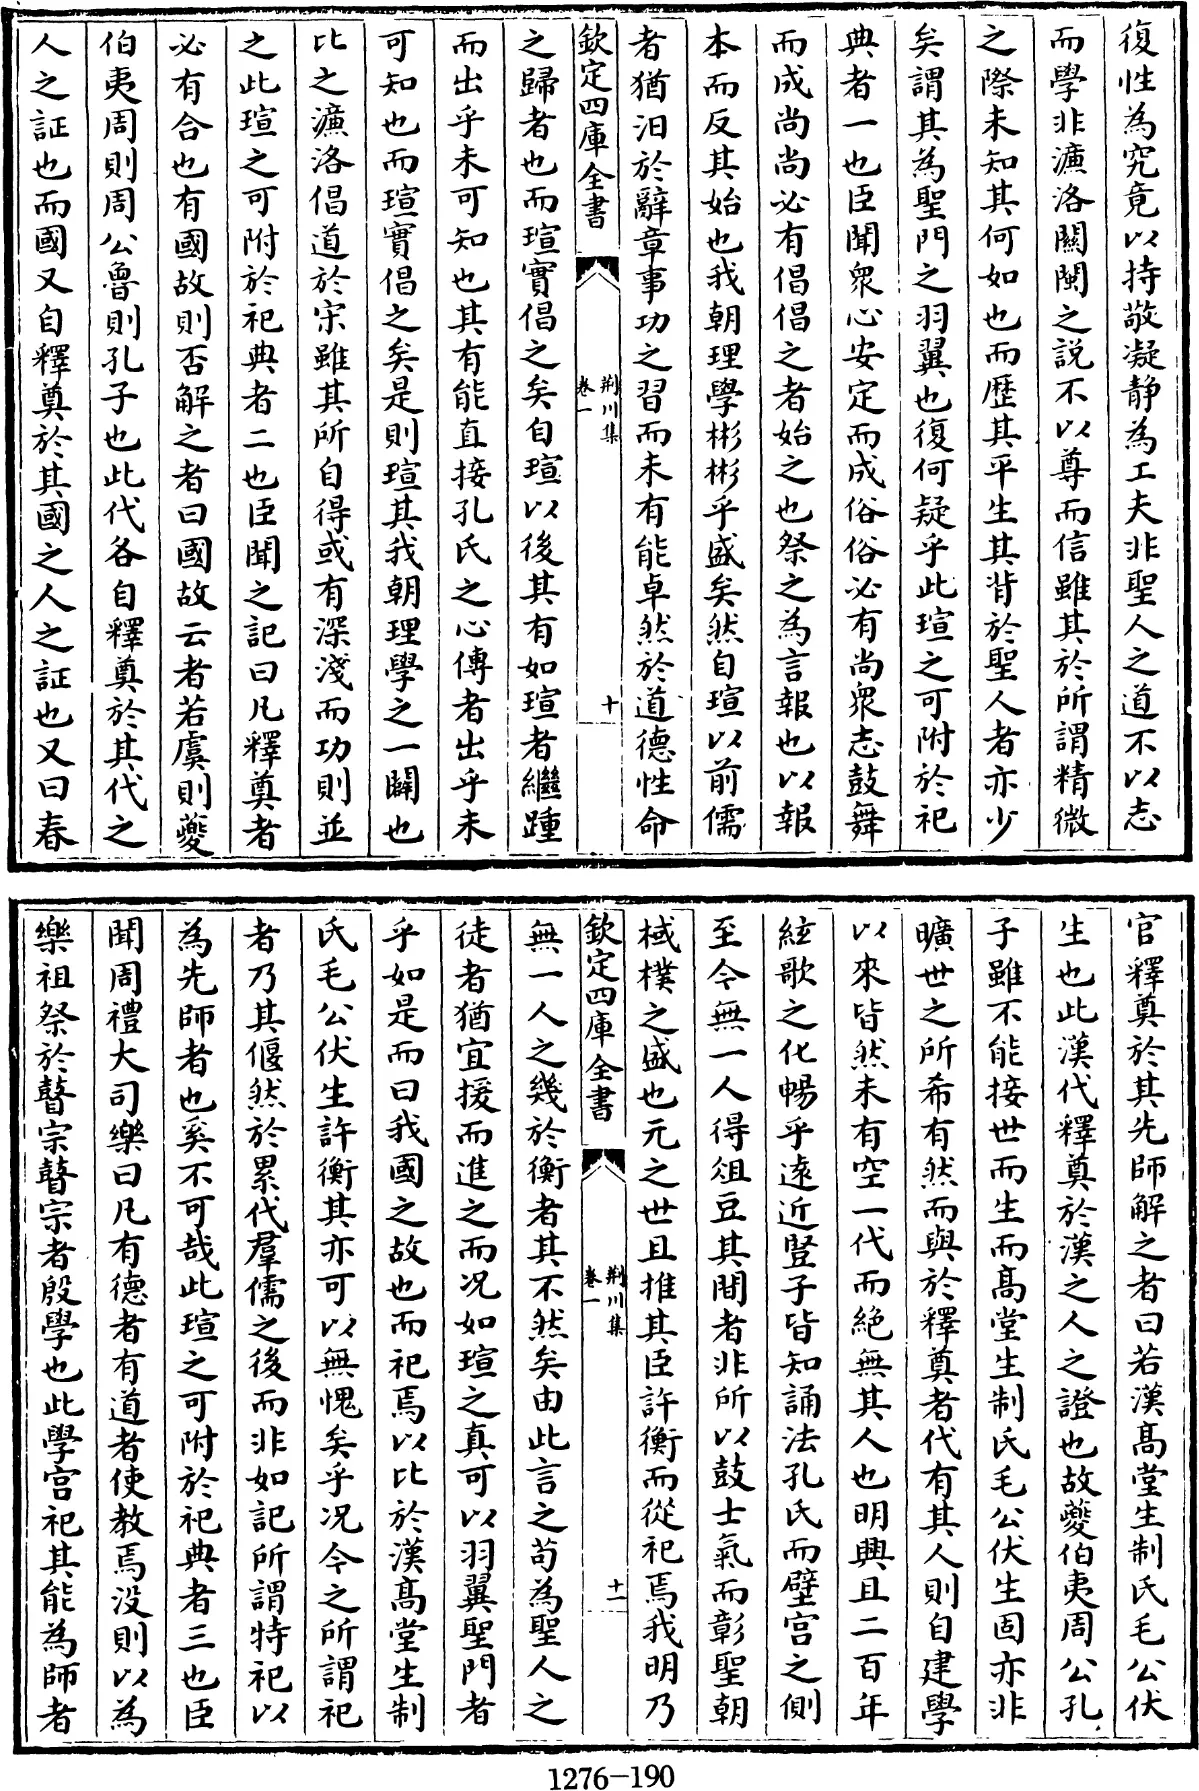 復性為究竟以持敬凝静為工夫非聖人之道不以志
而學非濂洛關閩之説不以尊而信雖其於所謂精微
之際未知其何如也而歴其平生其背於聖人者亦少
矣謂其為聖門之羽翼也復何疑乎此瑄之可附於祀
典者一也臣聞衆心安定而成俗俗必有尚衆志鼓舞
而成尚尚必有倡倡之者始之也祭之為言報也以報
本而反其始也我朝理學彬彬乎盛矣然自瑄以前儒
者猶汨於辭章事功之習而未有能卓然於道德性命
欽定四庫全書
荆川集
卷一
十
之歸者也而瑄實倡之矣自瑄以後其有如瑄者繼踵
而出乎未可知也其有能直接孔氏之心傳者出乎未
可知也而瑄實倡之矣是則瑄其我朝理學之一闢也
比之濂洛倡道於宋雖其所自得或有深淺而功則並
之此瑄之可附於祀典者二也臣聞之記曰凡釋奠者
必有合也有國故則否解之者曰國故云者若虞則夔
伯夷周則周公魯則孔子也此代各自釋奠於其代之
人之証也而國又自釋奠於其國之人之証也又曰春
官釋奠於其先師解之者曰若漢髙堂生制氏毛公伏
生也此漢代釋奠於漢之人之證也故夔伯夷周公孔
子雖不能接世而生而髙堂生制氏毛公伏生固亦非
曠世之所希有然而與於釋奠者代有其人則自建學
以來皆然未有空一代而絶無其人也明興且二百年
絃歌之化暢乎遠近豎子皆知誦法孔氏而壁宫之側
至今無一人得俎豆其間者非所以鼓士氣而彰聖朝
棫樸之盛也元之世且推其臣許衡而從祀焉我明乃
欽定四庫全書
荆川集
卷一
十一
無一人之幾於衡者其不然矣由此言之苟為聖人之
徒者猶宜援而進之而况如瑄之真可以羽翼聖門者
乎如是而曰我國之故也而祀焉以比於漢髙堂生制
氏毛公伏生許衡其亦可以無愧矣乎况今之所謂祀
者乃其偃然於累代羣儒之後而非如記所謂特祀以
為先師者也奚不可哉此瑄之可附於祀典者三也臣
聞周禮大司樂曰凡有德者有道者使教焉没則以為
樂祖祭於瞽宗瞽宗者殷學也此學宫祀其能為師者
1276-190